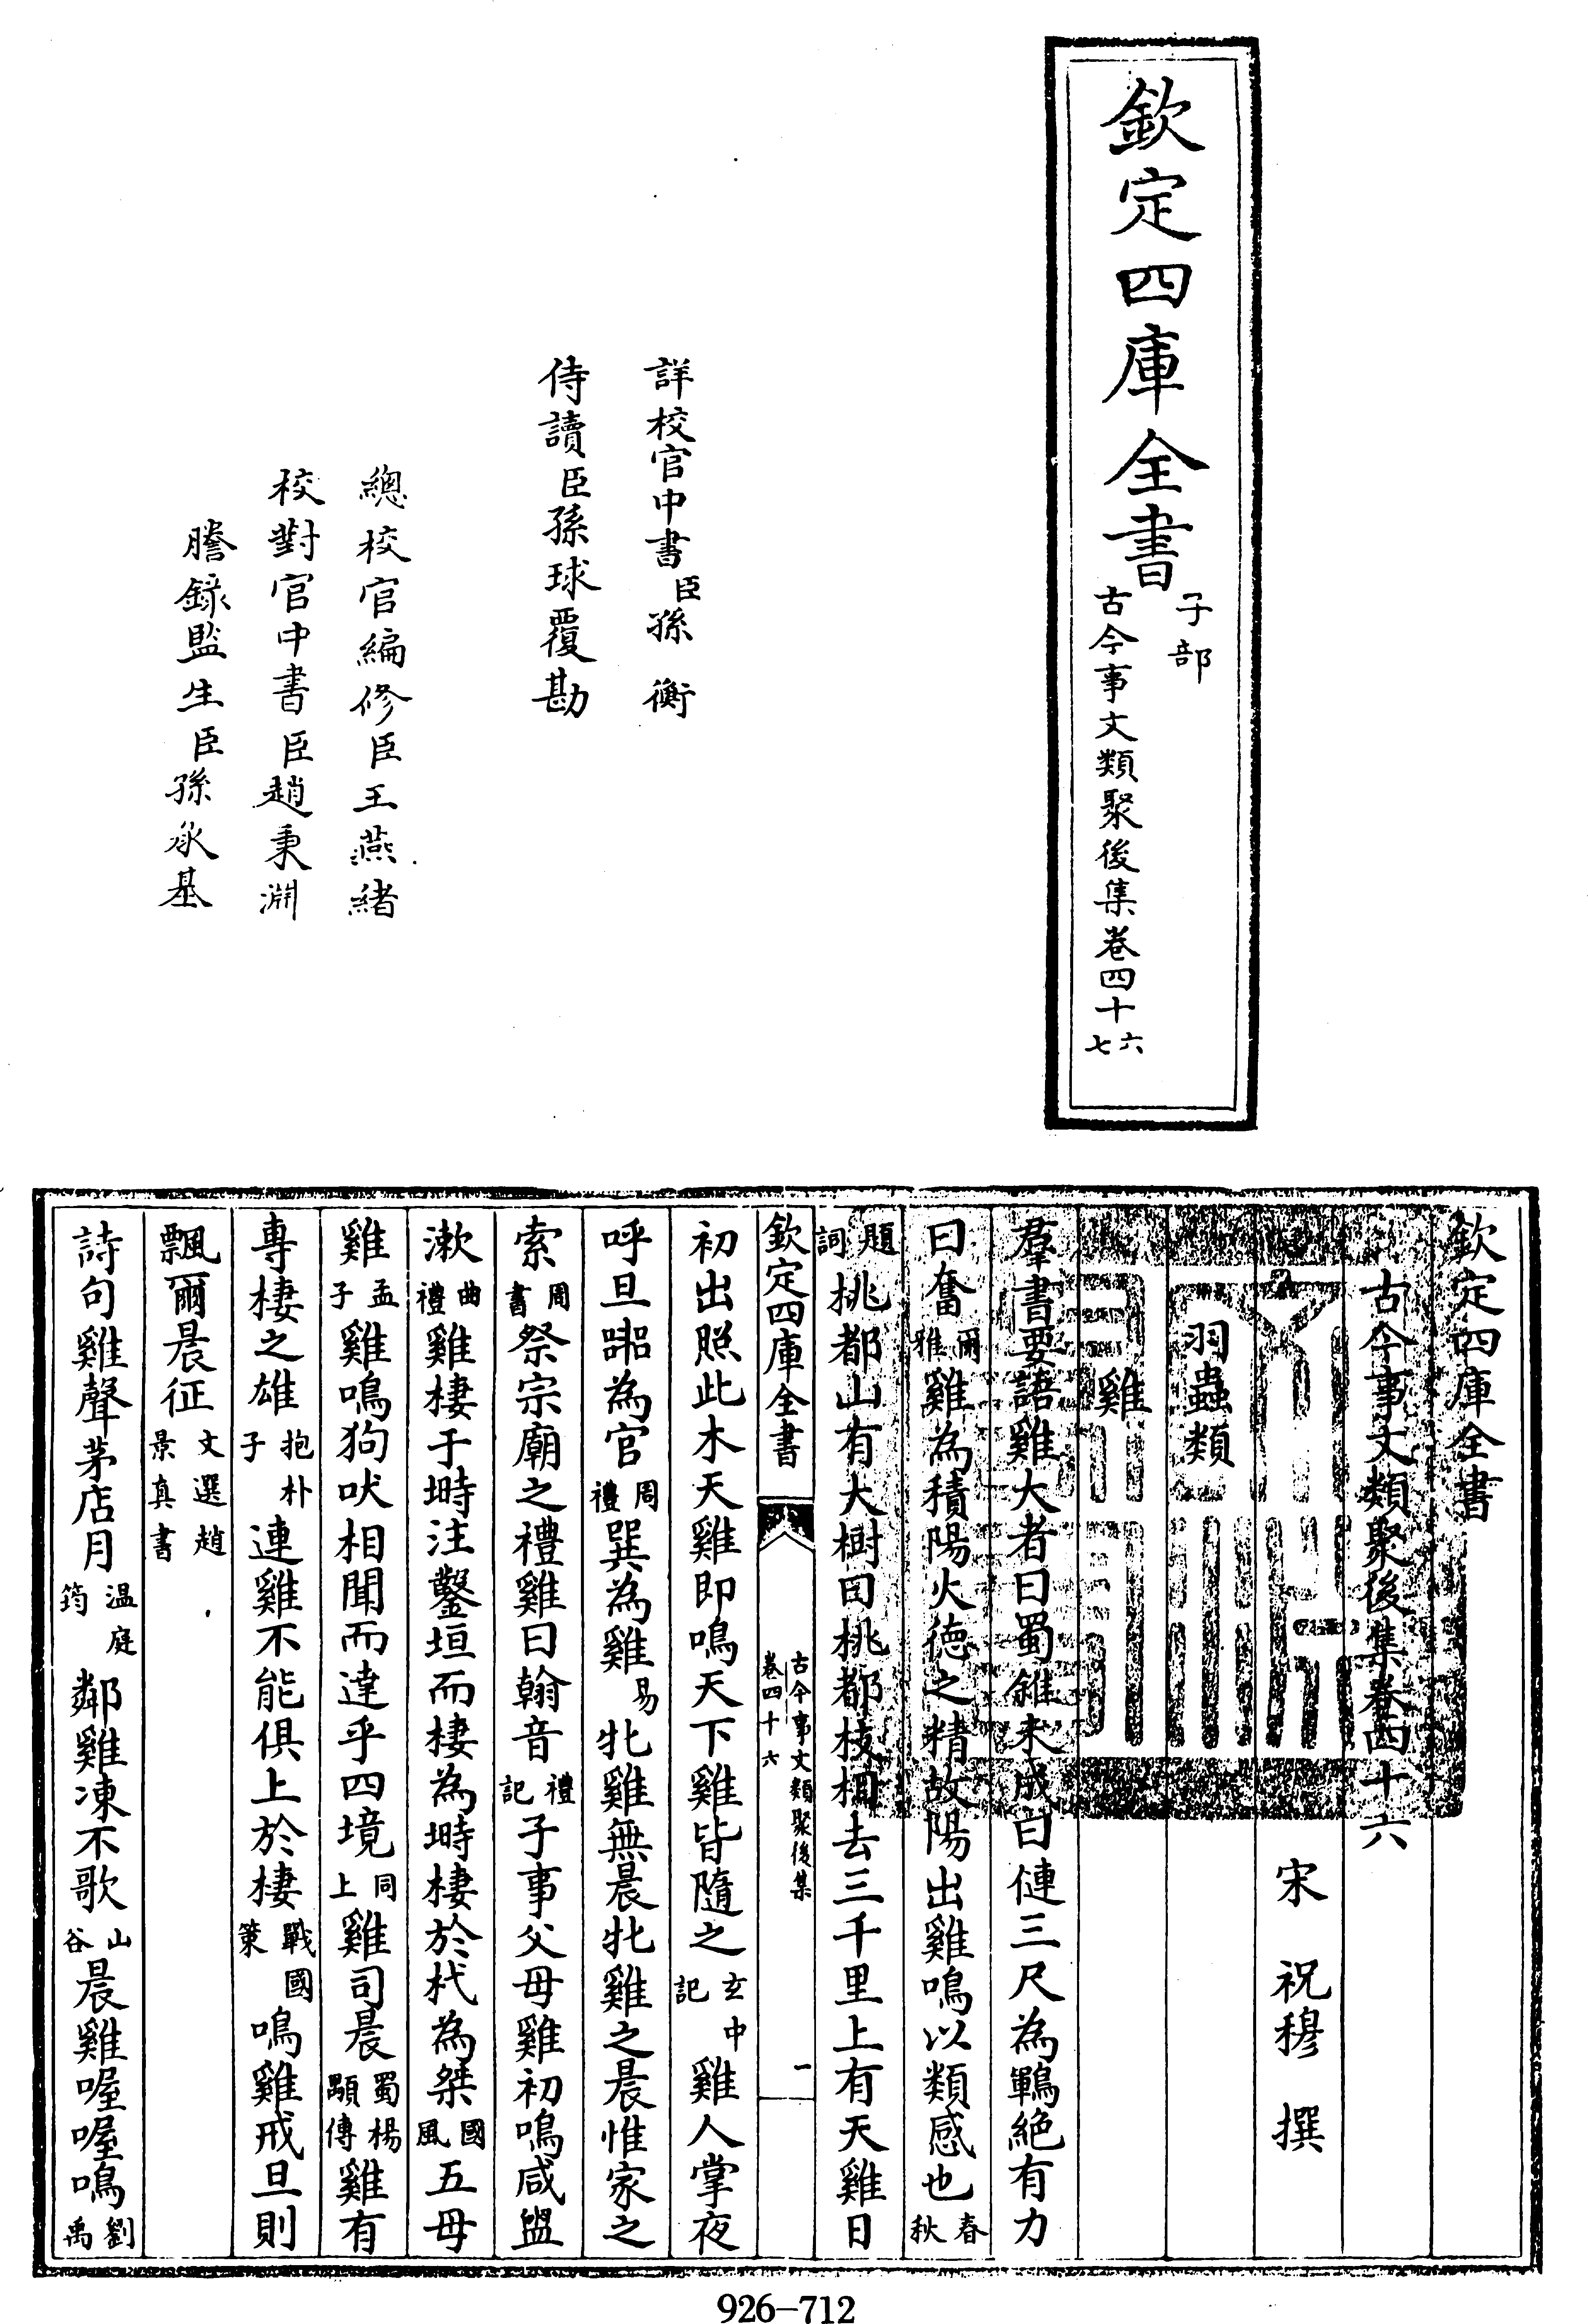 欽定四庫全書
子部
古今事文類聚後集卷四十六
七
詳校官中書臣孫衡
侍讀臣孫球覆勘
總校官編修臣王燕緒
校對官中書臣趙秉淵
謄錄監生臣孫承基
欽定四庫全書
古今事文類聚後集卷四十六
宋 祝穆 撰
羽蟲類
雞
羣書要語雞大者曰蜀雓未成曰僆三尺為鶤絶有力
曰奮爾雅雞為積陽火徳之精故陽出雞鳴以類感也春秋
題詞桃都山有大樹曰桃都枝相去三千里上有天雞日
欽定四庫全書
古今事文類聚後集
卷四十六
一
初出照此木天雞即鳴天下雞皆隨之玄中記雞人掌夜
呼旦嘂為官周禮巽為雞易牝雞無晨牝雞之晨惟家之
索周書祭宗廟之禮雞曰翰音禮記子事父母雞初鳴咸盥
漱曲禮雞棲于塒注鑿垣而棲為塒棲於杙為桀國風五母
雞孟子雞鳴狗吠相聞而達乎四境同上雞司晨蜀楊顒傳雞有
專棲之雄抱朴子連雞不能俱上於棲戰國策鳴雞戒旦則
飄爾晨征文選趙景真書
詩句雞聲茅店月温庭筠鄰雞凍不歌山谷晨雞喔喔鳴劉禹
926-712